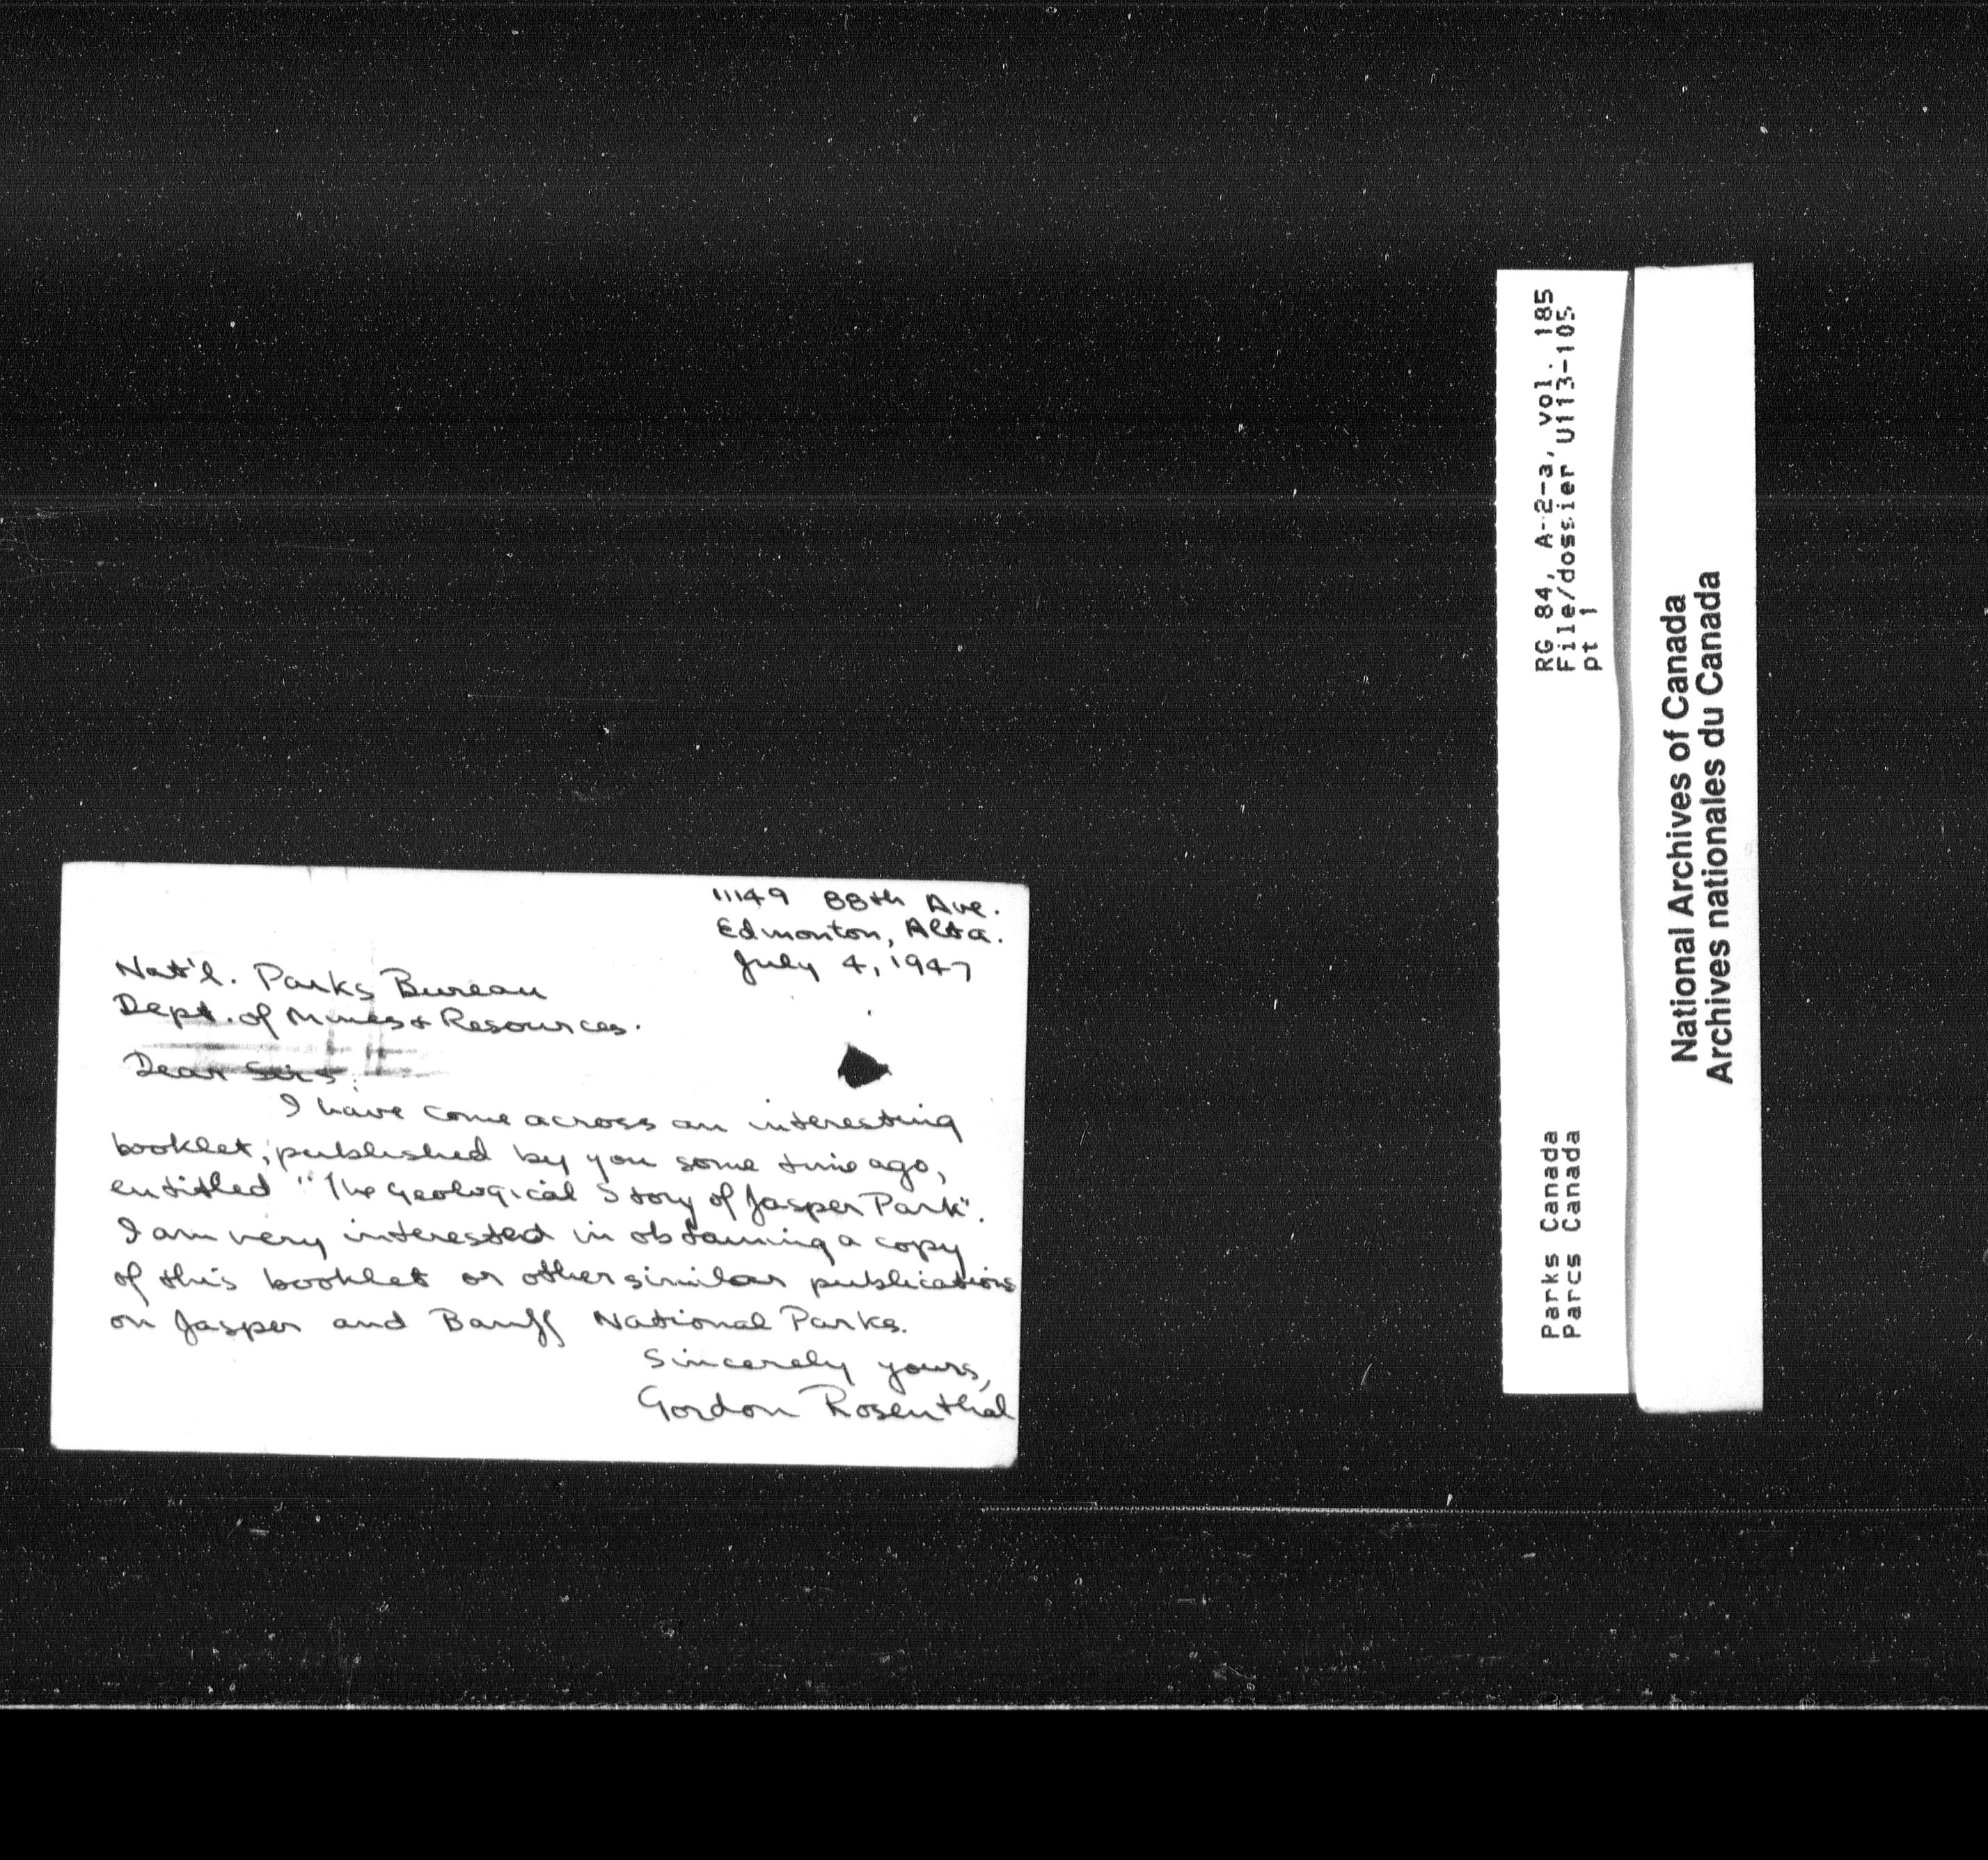 11149 88th Ave.
Edmonton, Alta.
July 4, 1947
Nat'l. Parks Bureau
Dept. of Mines & Resources.
Dear Sirs:
I have come across an interesting
booklet, published by you some time ago,
entitled "The Geological Story of Jasper Park".
I am very interested in obtaining a copy
of this booklet or other similar publications
on Jasper and Banff National Parks.
Sincerely yours,
Gordon Rosenthal
Parks Canada
Parcs Canada
RG 84, A-2-a, vol. 185
File/dossier U113-105,
pt 1
National Archives of Canada
Archives nationales du Canada